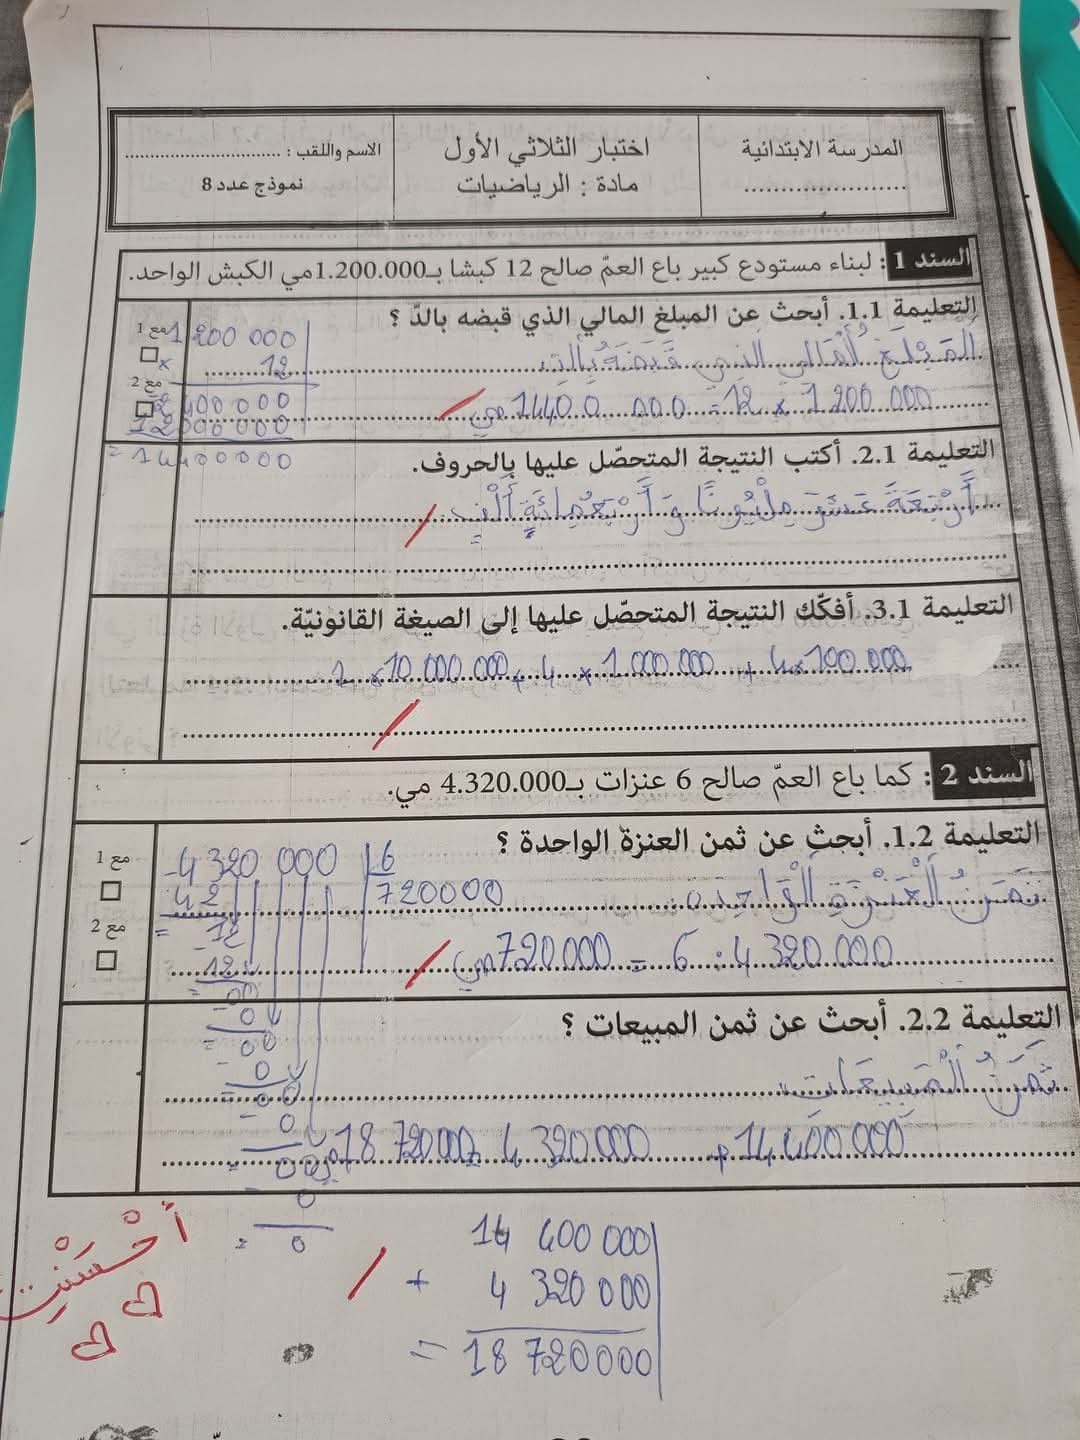 المدرسة الابتدائية
.....................
اختبار الثلاثي الأول
مادة : الرياضيات
الاسم واللقب : ..........................
نموذج عدد 8
السند 1 : لبناء مستودع كبير باع العمّ صالح 12 كبشا بـ1.200.000مي الكبش الواحد.
التعليمة 1.1. أبحث عن المبلغ المالي الذي قبضه بالدّ ؟
اَلْمَبْلَغُ اُلْمَالي الذي قَبَضَهُ بِالد
1 200 000 × 12 = 14400 000 مي
مع 1
مع 2
1 200 000
× 12
2 400 000
12 000 000
= 14400000
التعليمة 2.1. أكتب النتيجة المتحصّل عليها بالحروف.
أَرْبَعَةَ عَشَرَ مِلْيُونًا وَ أَرْبَعُمِائَةِ أَلْفٍ
التعليمة 3.1. أفكّك النتيجة المتحصّل عليها إلى الصيغة القانونيّة.
1 × 10 000 000 + 4 × 1 000 000 + 4 × 100 000
السند 2 : كما باع العمّ صالح 6 عنزات بـ4.320.000 مي.
التعليمة 1.2. أبحث عن ثمن العنزة الواحدة ؟
ثَمَنُ اَلْعَنْزَةِ اَلْوَاحِدَة
4 320 000 : 6 = 720 000 مي
مع 1
مع 2
4 320 000 | 6
720000
- 42
= 12
- 12
= 00
- 0
= 00
- 0
= 00
- 0
= 00
- 0
= 0
التعليمة 2.2. أبحث عن ثمن المبيعات ؟
ثَمَنُ اَلْمَبِيعَات
14 400 000 + 4 320 000 = 18 720 000 مي
14 400 000
+ 4 320 000
= 18 720000
أَحْسَنْتِ